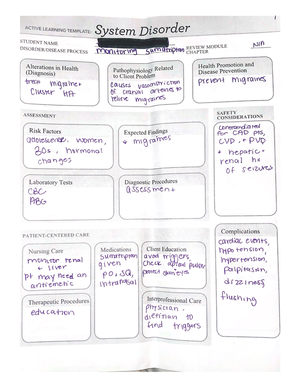 ACTIVE LEARNING TEMPLATE: System Disorder
STUDENT NAME
DISORDER/DISEASE PROCESS monitoring sumatriptan
REVIEW MODULE CHAPTER N/A
Alterations in Health (Diagnosis)
treat migraines
cluster HA
Pathophysiology Related to Client Problem
causes vasoconstriction
of cranial arteries to
relieve migraines
Health Promotion and Disease Prevention
prevent migraines
ASSESSMENT
SAFETY CONSIDERATIONS
Risk Factors
adolescence, women,
30s, hormonal
changes
Expected Findings
↓ migraines
contraindicated
for CAD pts,
CVD + PVD
+ hepatic +
renal hx
of seizures
Laboratory Tests
CBC
ABG
Diagnostic Procedures
assessment
PATIENT-CENTERED CARE
Complications
cardiac events,
hypotension,
hypertension,
palpitation,
dizziness,
flushing
Nursing Care
monitor renal
+ liver
pt may need an
antiemetic
Medications
sumatriptan
given
PO, SQ,
intranasal
Client Education
avoid triggers,
check apical pulse
Therapeutic Procedures
education
Interprofessional Care
physician,
dietician to
find triggers